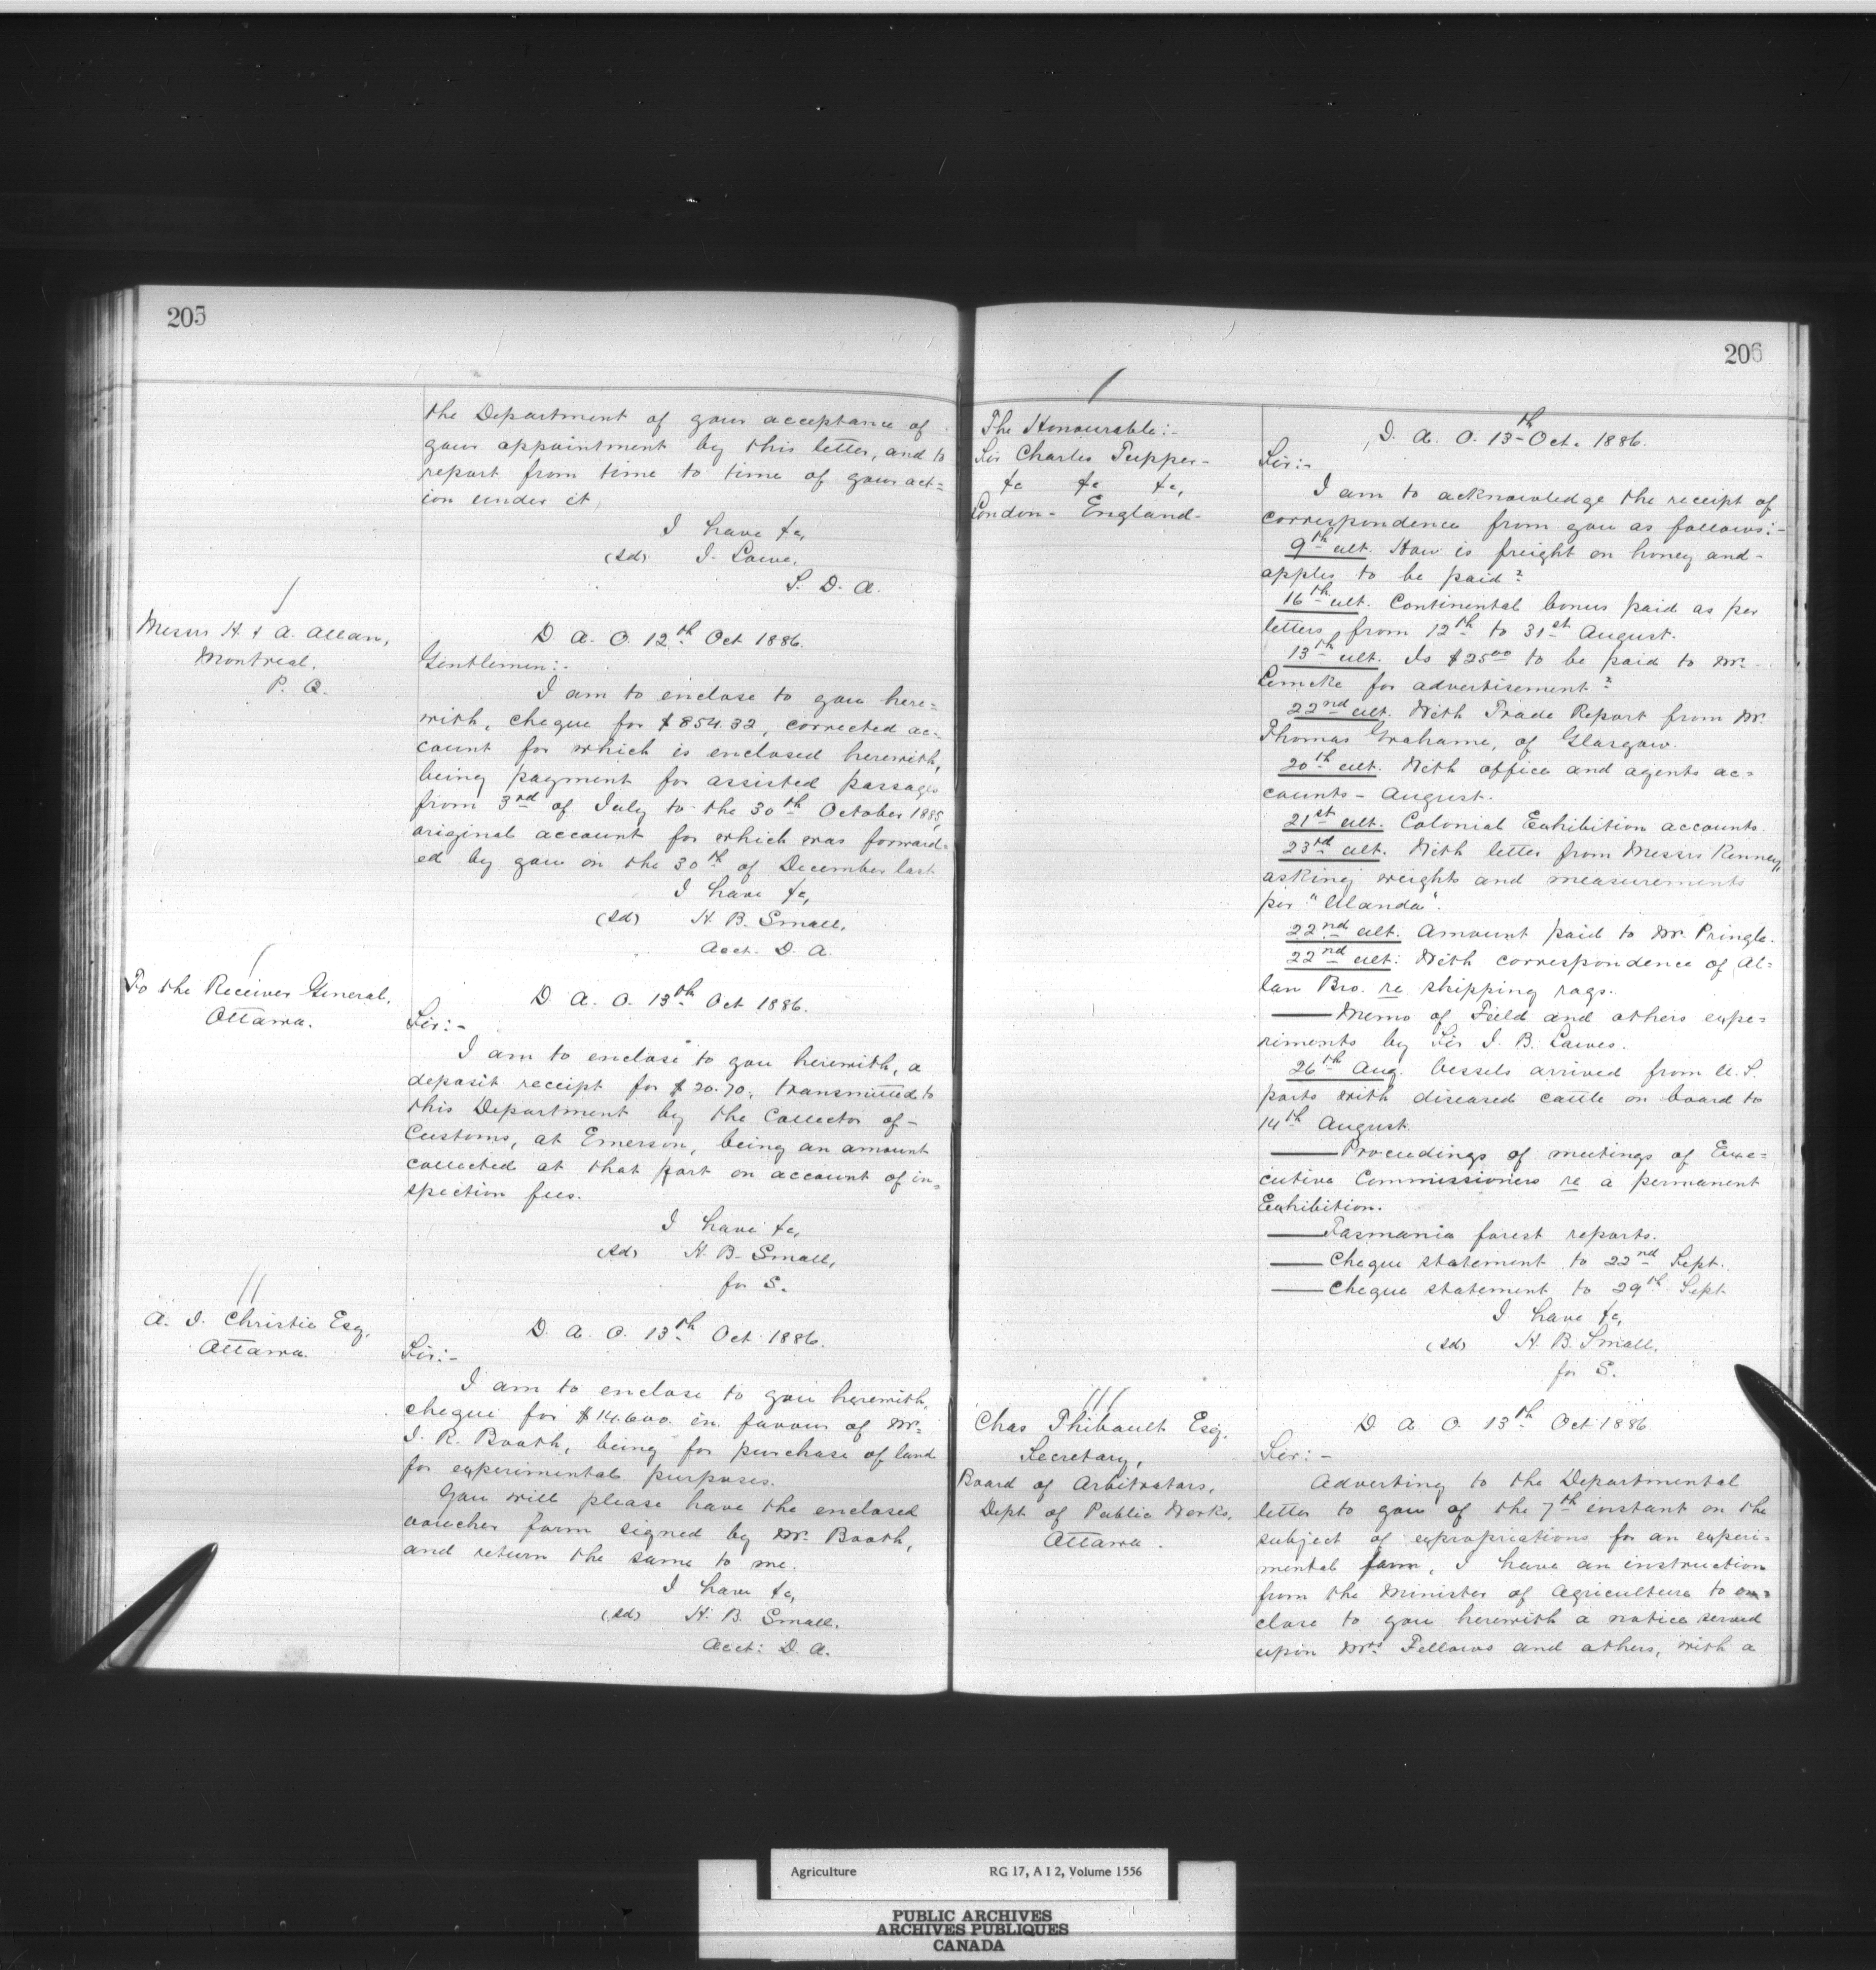 205
the Department of your acceptance of
your appointment by this letter, and to
report from time to time of your act=
ion under it,
I have &c,
(Sd) J. Lowe.
S. D. A.
Messrs H. & A. Allan,
Montreal.
P. Q.
D. A. O. 12th Oct 1886.
Gentlemen:-
I am to enclose to you here=
with, cheque for $854.32, corrected ac=
count for which is enclosed herewith,
being payment for assisted passages
from 3rd of July to the 30th October 1885,
original account for which was forward=
ed by you on the 30th of December last
I have &c,
(Sd) H. B. Small,
Acct. D. A.
To the Receiver General,
Ottawa.
D. A. O. 13th Oct 1886.
Sir:-
I am to enclose to you herewith, a
deposit receipt for $20.70, transmitted to
this Department by the Collector of-
Customs, at Emerson, being an amount
collected at that port on account of in=
spection fees.
I have &c,
(Sd) H. B. Small,
for S.
A. J. Christie Esq,
Ottawa.
D. A. O. 13th Oct 1886.
Sir:-
I am to enclose to you herewith,
cheque for $14.600. in favour of Mr.
J. R. Booth, being for purchase of land
for experimental purposes.
You will please have the enclosed
voucher form signed by Mr. Booth,
and return the same to me.
I have &c,
(Sd) H. B. Small.
Acct: D. A.
206
The Honourable:-
Sir Charles Tupper-
&c &c &c,
London- England-
D. A. O. 13th Oct. 1886.
Sir:-
I am to acknowledge the receipt of
correspondence from you as follows:-
9th ult. How is freight on honey and-
apples to be paid?
16th ult. Continental bonus paid as per
letters from 12th to 31st August.
13th ult. Is $25.00 to be paid to Mr.
Lemcke for advertisement?
22nd ult. With Trade Report from Mr.
Thomas Grahame, of Glasgow.
20th ult. With office and agents ac=
counts- August.
21st ult. Colonial Exhibition accounts.
23rd ult. With letter from Messrs Kenney,
asking weights and measurements
per "Ulanda".
22nd ult. Amount paid to Mr. Pringle.
22nd ult. With correspondence of Al=
lan Bro. re shipping rags.
—— Memo of Field and others expe=
riments by Sir J. B. Lawes.
26th Aug. Vessels arrived from U. S.
ports with diseased cattle on board to
14th August.
—— Proceedings of meetings of Exe=
cutive Commissioners re a permanent
Exhibition.
—— Tasmania forest reports.
—— Cheque statement to 22nd Sept.
—— Cheque statement to 29th Sept
I have &c,
(Sd) H. B. Small.
for S.
Chas Thibault Esq,
Secretary,
Board of Arbitrators,
Dept of Public Works,
Ottawa.
D A O. 13th Oct 1886
Sir:-
Adverting to the Departmental
letter to you of the 7th instant on the
subject of expropriations for an experi=
mental farm, I have an instruction
from the Minister of Agriculture to en=
close to you herewith a notice served
upon Mrs Fellows and others, with a
Agriculture RG 17, A I 2, Volume 1556
PUBLIC ARCHIVES
ARCHIVES PUBLIQUES
CANADA